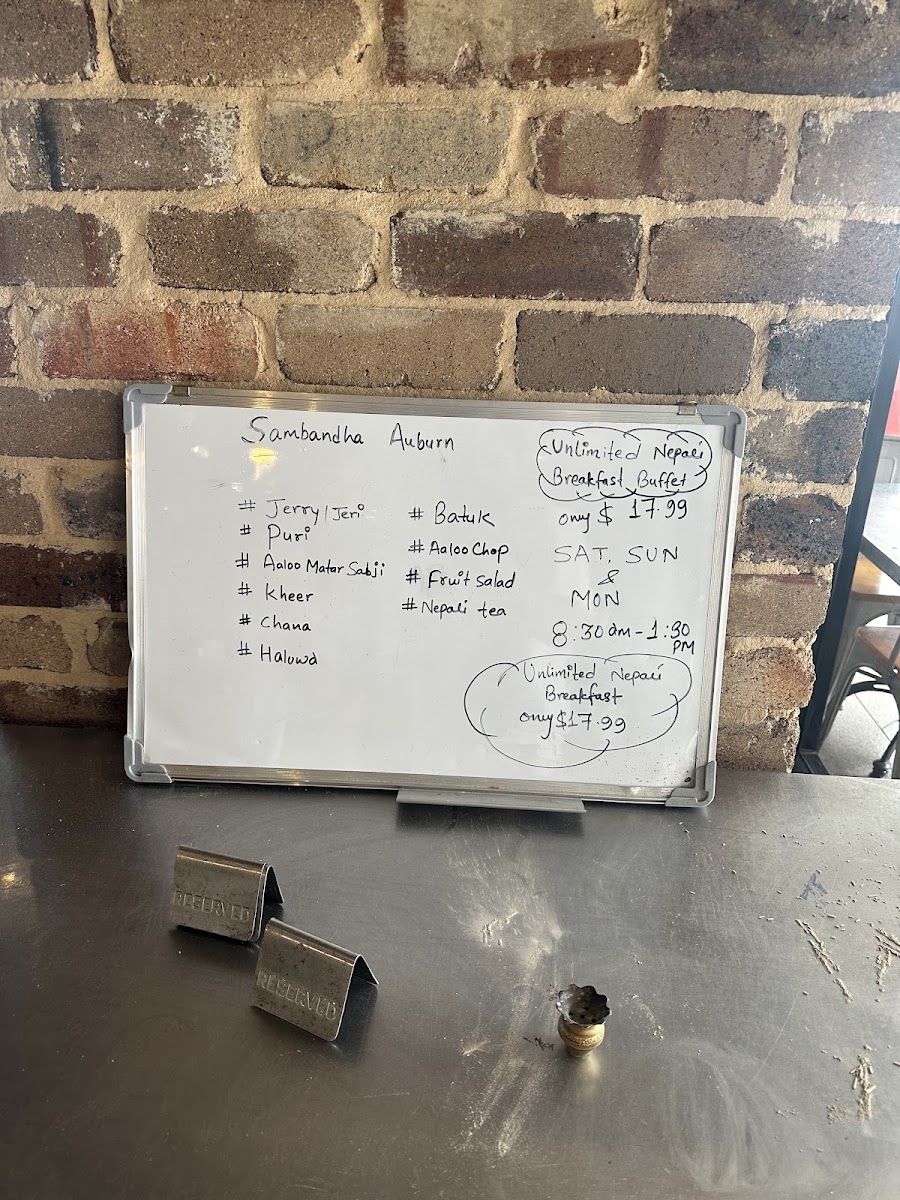 Sambandha Auburn
# Jerry/Jeri
# Puri
# Aaloo Matar Sabji
# Kheer
# Chana
# Haluwa
# Batuk
# Aaloo Chop
# Fruit Salad
# Nepali tea
Unlimited Nepali
Breakfast Buffet
only $ 17.99
SAT, SUN
&
MON
8:30am-1:30
PM
Unlimited Nepali
Breakfast
only $17.99
RESERVED
RESERVED